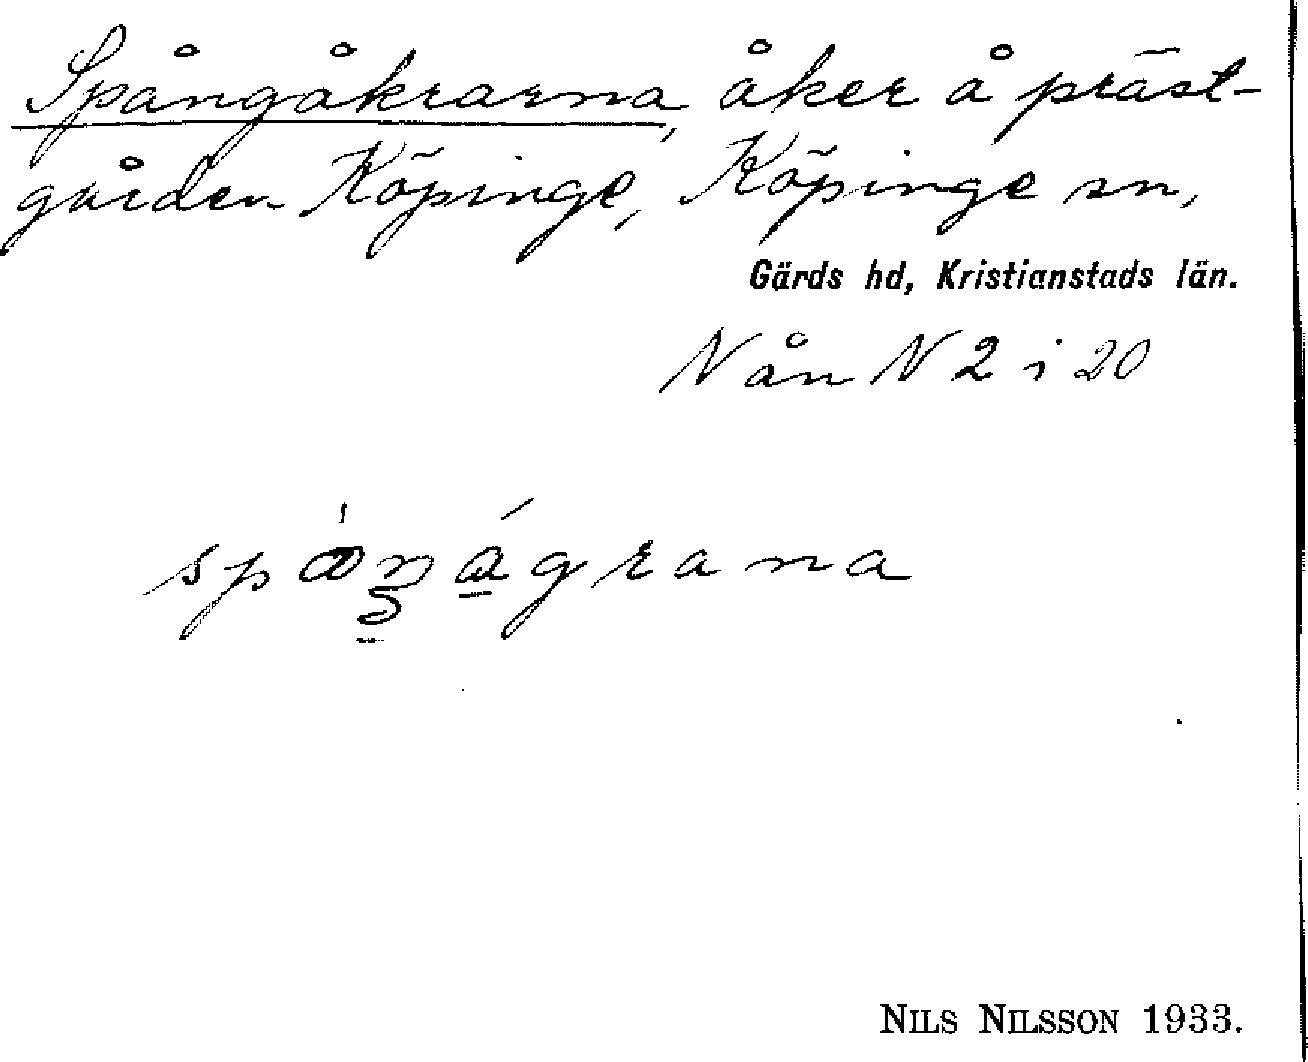 Spångåkrarna, åker å präst-
gården Köpinge, Köpinge sn,
Gärds hd, Kristianstads län.
Nån N 2 i 20
NILS NILSSON 1933.